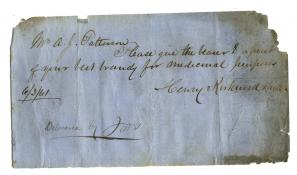 Mr A. J. Patterson
Please give the bearer a pint
of your best brandy for medicinal purposes
6/3/61 Henry Kirkwood
Delivered by